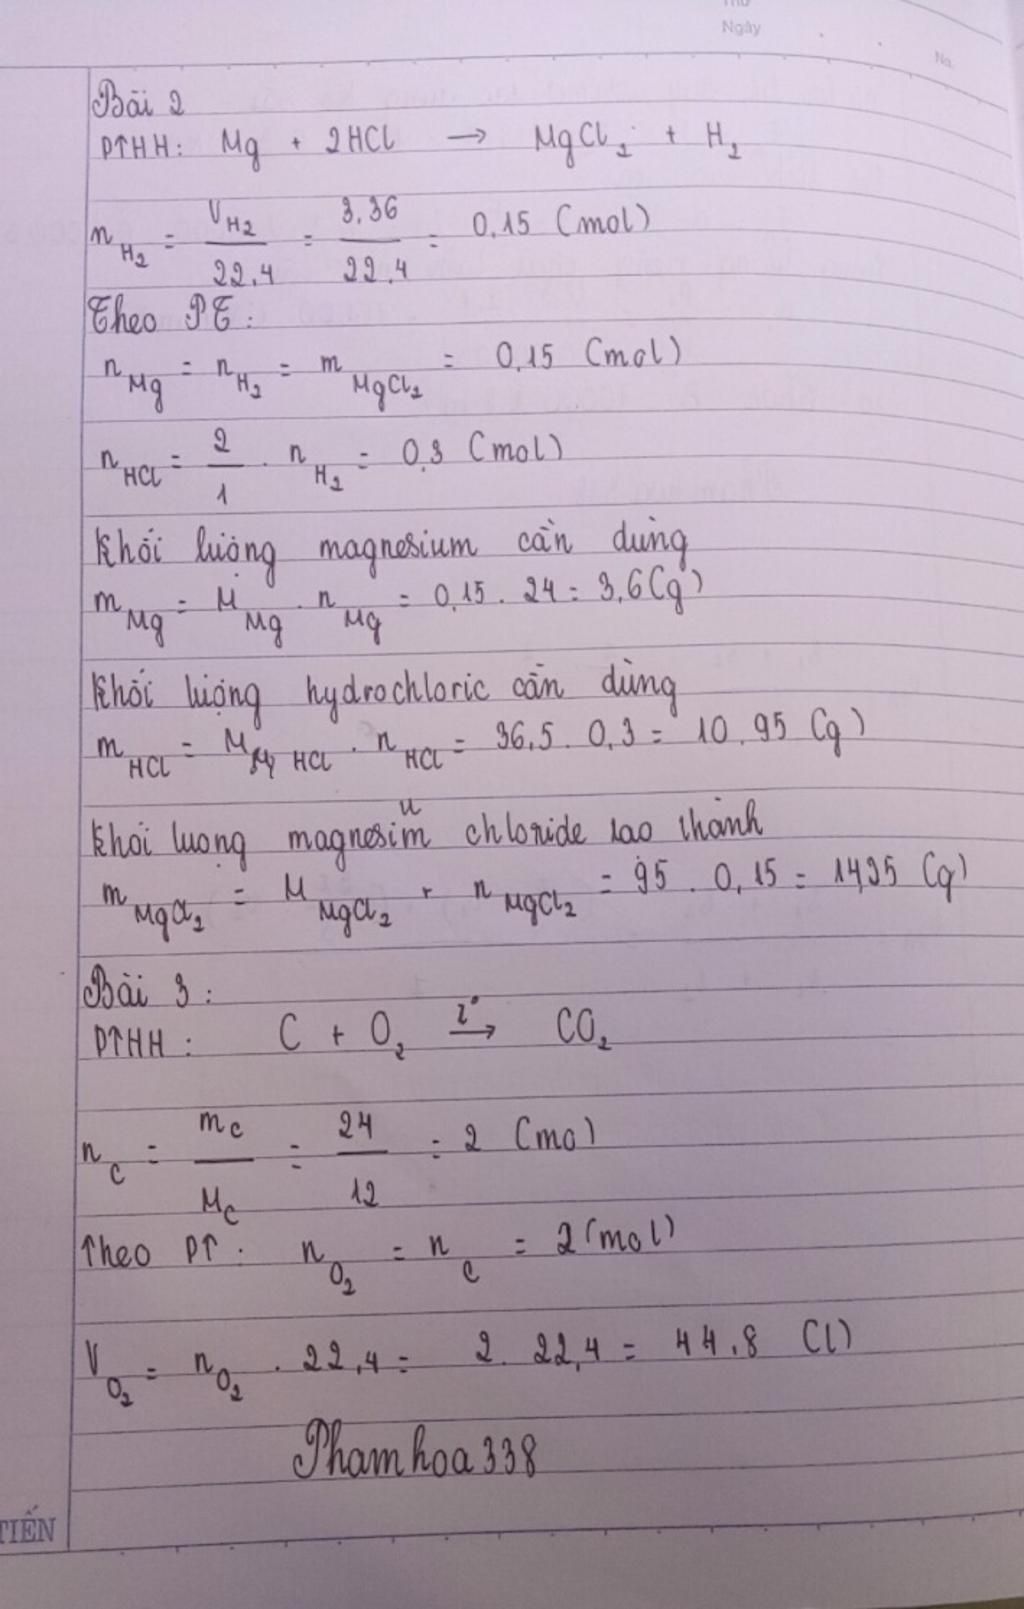 Thứ
Ngày
No.
Bài 2
PTHH: Mg + 2HCl → MgCl₂ + H₂
n_H₂ = V_H₂ / 22.4 = 3.36 / 22.4 = 0.15 (mol)
Theo PT:
n_Mg = n_H₂ = m_MgCl₂ = 0.15 (mol)
n_HCl = 2/1 . n_H₂ = 0.3 (mol)
Khối lượng magnesium cần dùng
m_Mg = M_Mg . n_Mg = 0.15 . 24 = 3,6 (g)
Khối lượng hydrochloric cần dùng
m_HCl = M_HCl . n_HCl = 36,5 . 0,3 = 10.95 (g)
Khối lượng magnesium chloride tao thành
m_MgCl₂ = M_MgCl₂ . n_MgCl₂ = 95 . 0,15 = 14,25 (g)
Bài 3:
PTHH: C + O₂ →(t°) CO₂
n_C = m_C / M_C = 24 / 12 = 2 (mol)
Theo PT: n_O₂ = n_C = 2 (mol)
V_O₂ = n_O₂ . 22,4 = 2. 22,4 = 44.8 (l)
Phamhoa338
TIẾN